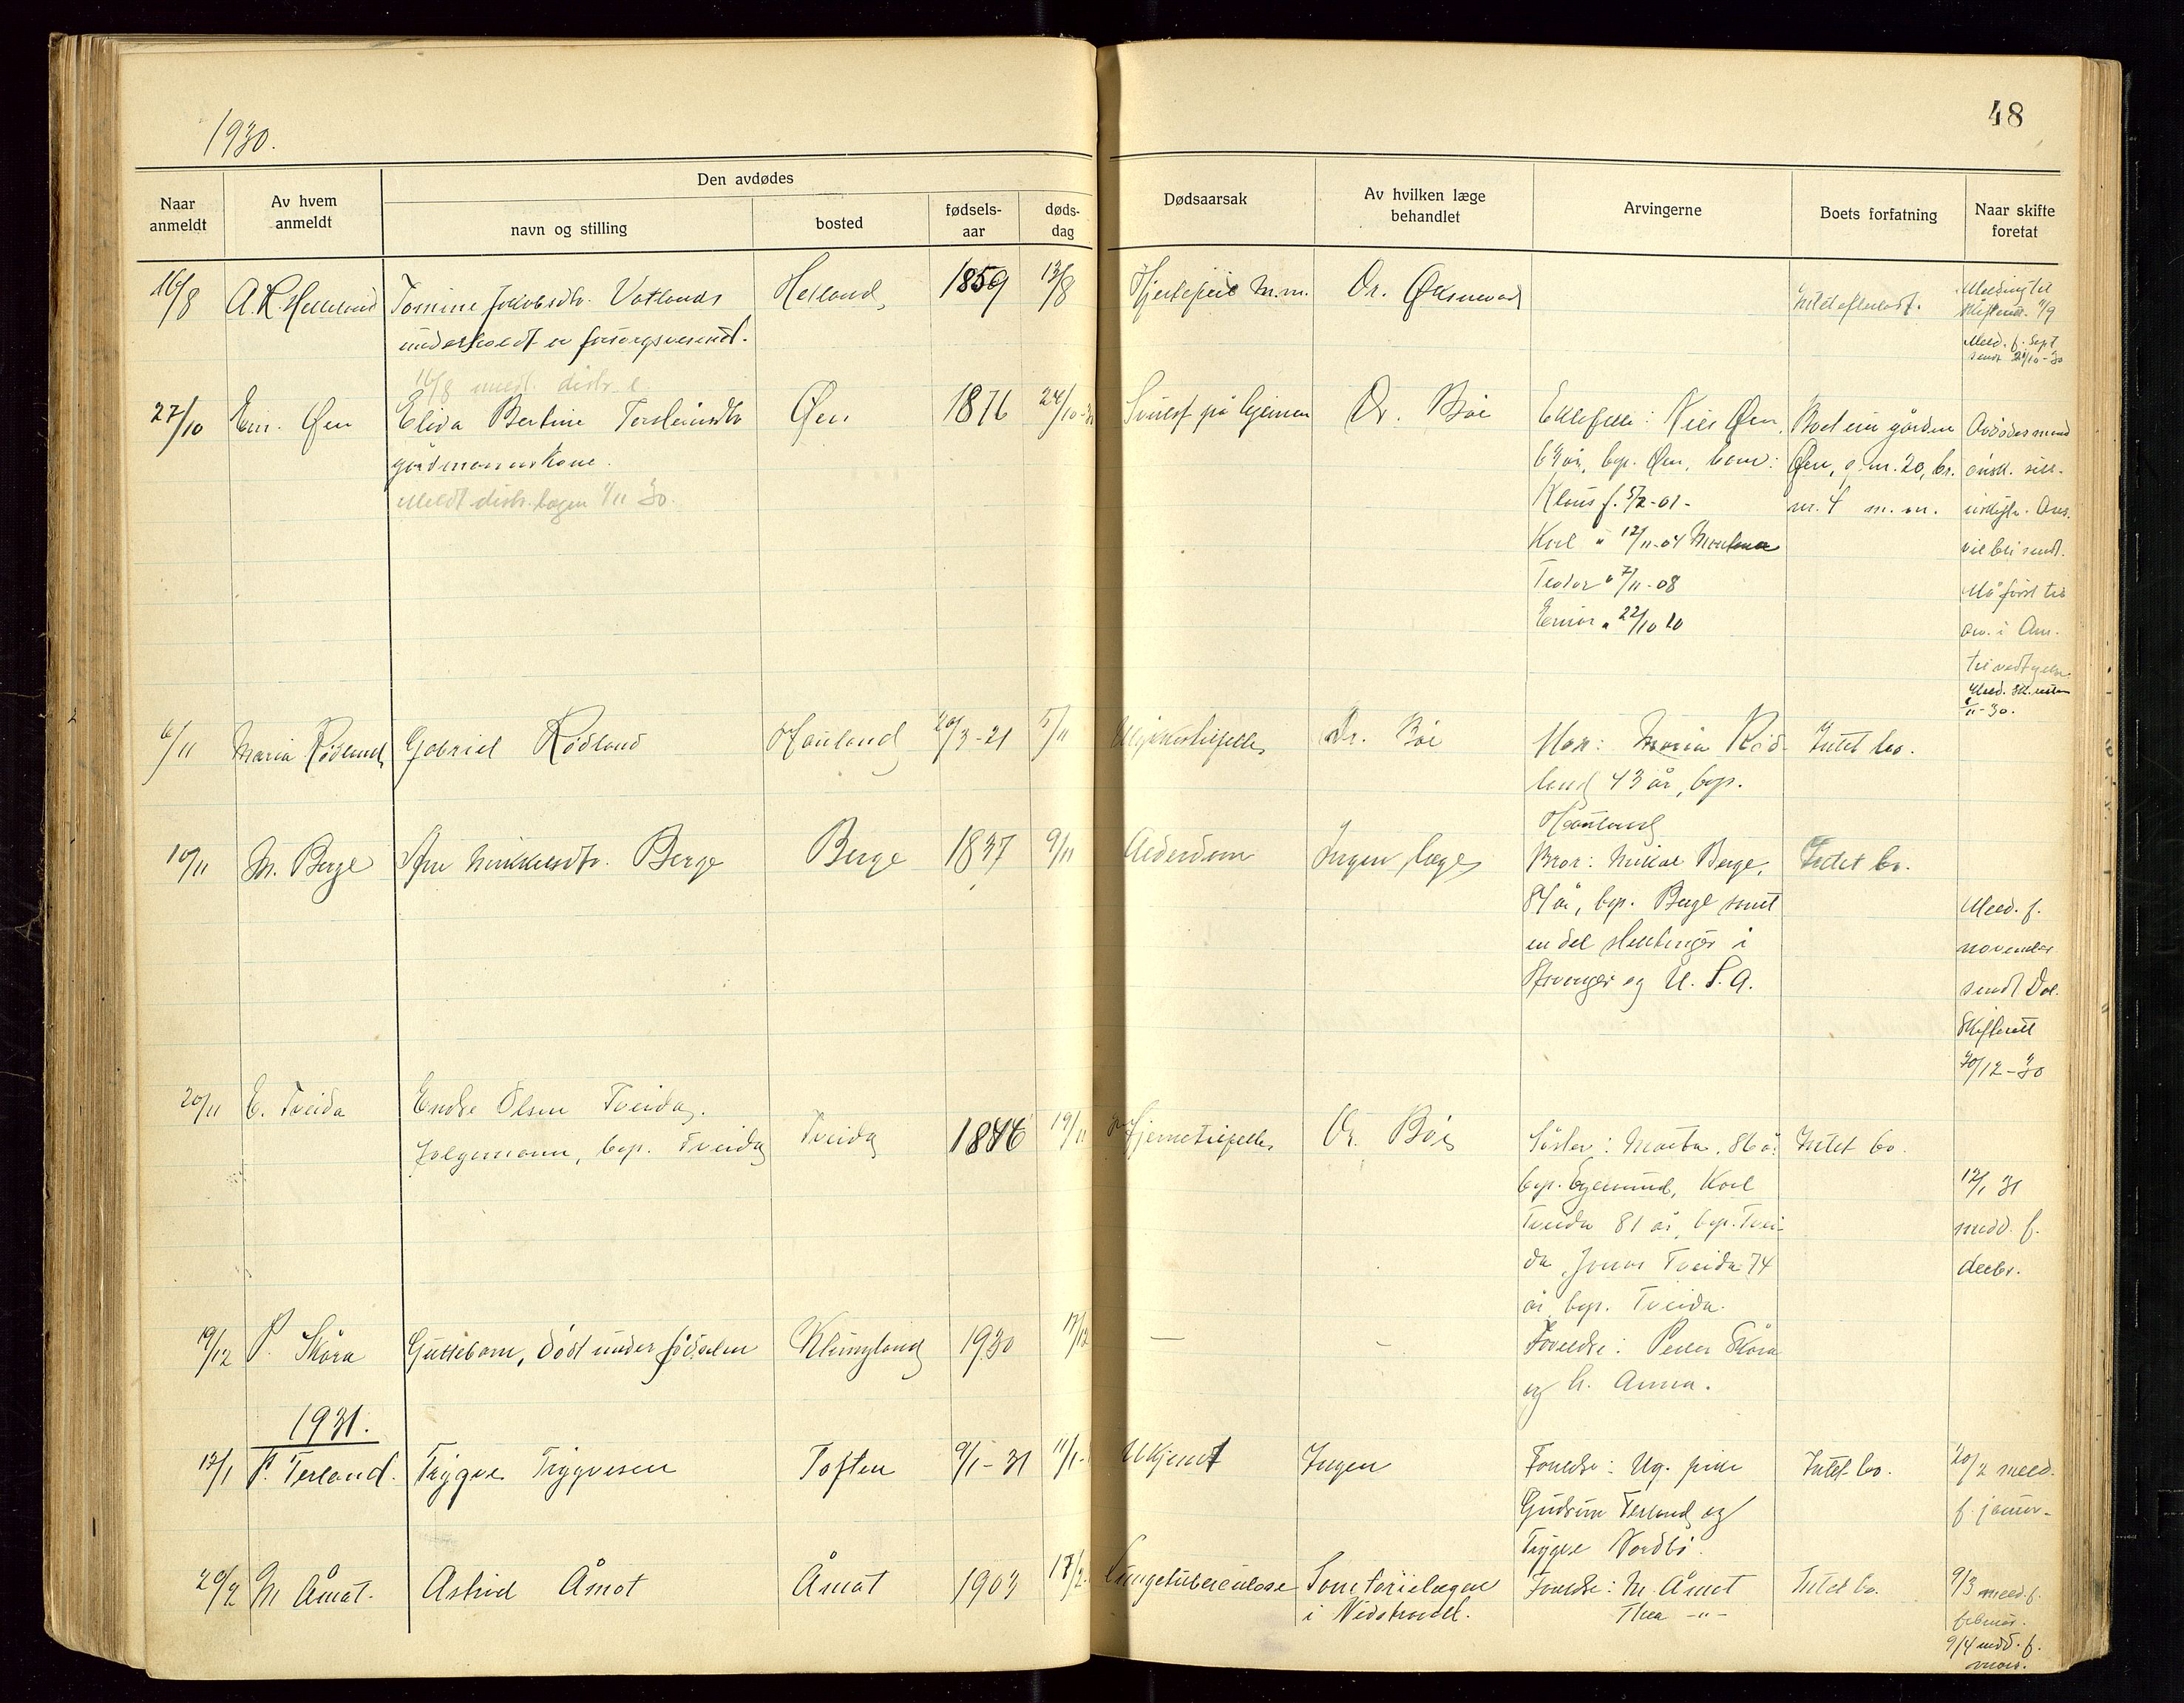 48
1930.
Naar anmeldt
Av hvem anmeldt
Den avdødes
navn og stilling
bosted
fødsels-aar
døds-dag
Dødsaarsak
Av hvilken læge behandlet
Arvingerne
Boets forfatning
Naar skifte foretat
16/8 A. K. Helleland Tomine Jakobsdtr. Vatlands Helland 1859 13/8 Hjertefeil m.m. Dr. Øksnevad Intet efterladt. Melding til skifterett. 11/9
underholdt av forsorgsvesenet.
Meld. f. Sept
sendt 21/10-30
16/8 meldt distr. l.
27/10 Em. Øen Elida Bertine Torsteinsdtr Øen 1876 24/10-30 Svulst på hjernen Dr. Bøe Ektefelle: Nils Øen, Boet eier gården Avdødes mand
gårdmannskone. 64 år, bop. Øen, barn: Øen, g.nr. 20, br. ønsk.
Meldt distr. lægen 1/11 30. Klaus f. 5/2-01- nr. 4 m. m.
Karl " 12/11-04 vil bli sendt.
Teodor " 7/11-08 Må først til
Einar " 22/10 10 av. i Am.
Meld. sk.retten
11-30.
6/11 Maria Rødland Gabriel Rødland Hauland 20/3-21 5/11 Dr. Bøe Mor: Maria Rød- Intet bo.
land 43 år, bop.
Hauland
10/11 M. Berge Ane Mikkelsdtr. Berge Berge 1837 9/11 Alderdom Ingen læge Bror: Mikal Berge, Intet bo.
84 år, bop. Berge samt Meld. f.
en del slektinger i november
Stavanger og U.S.A. sendt Dal.
Skifterett
30/12-30
20/11 E. Tveida Endre Olsen Tveida. Tveida 1846 19/11 Hjernetripelle Dr. Bøe Søster: Marta, 86 år Intet bo.
Følgemann, bop. Tveida bop. Egersund, Karl 12/1 31
Tveida 81 år, bop. Tvei- medd. f.
da, Jonas Tveida 74 decbr.
år, bop. Tveida.
19/12 P. Skåra Guttebarn, dødt under fødselen Klungland 1930 17/12 — - Foreldre: Peder Skåra
og h. Anna.
1931.
13/1 P. Terland. Trygve Trygvesen Toften 9/1-31 11/1- Ukjent Ingen Foreldre: Ug. pike Intet bo. 20/2 meld.
Gudrun Terland og f. januar-
Trygve Nordbø.
20/2 M Åmot. Astrid Åmot Åmot 1903 18/2. Lungetuberculose Sanatorielægen Foreldre: M. Åmot Intet bo. 9/3 meld. f.
i Nedstrand. Thea -"- februar.
9/4 medd. f.
mars.